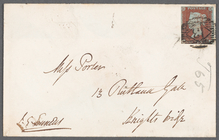 Miss Porter
13 Rutland Gate
Knights bridge
765